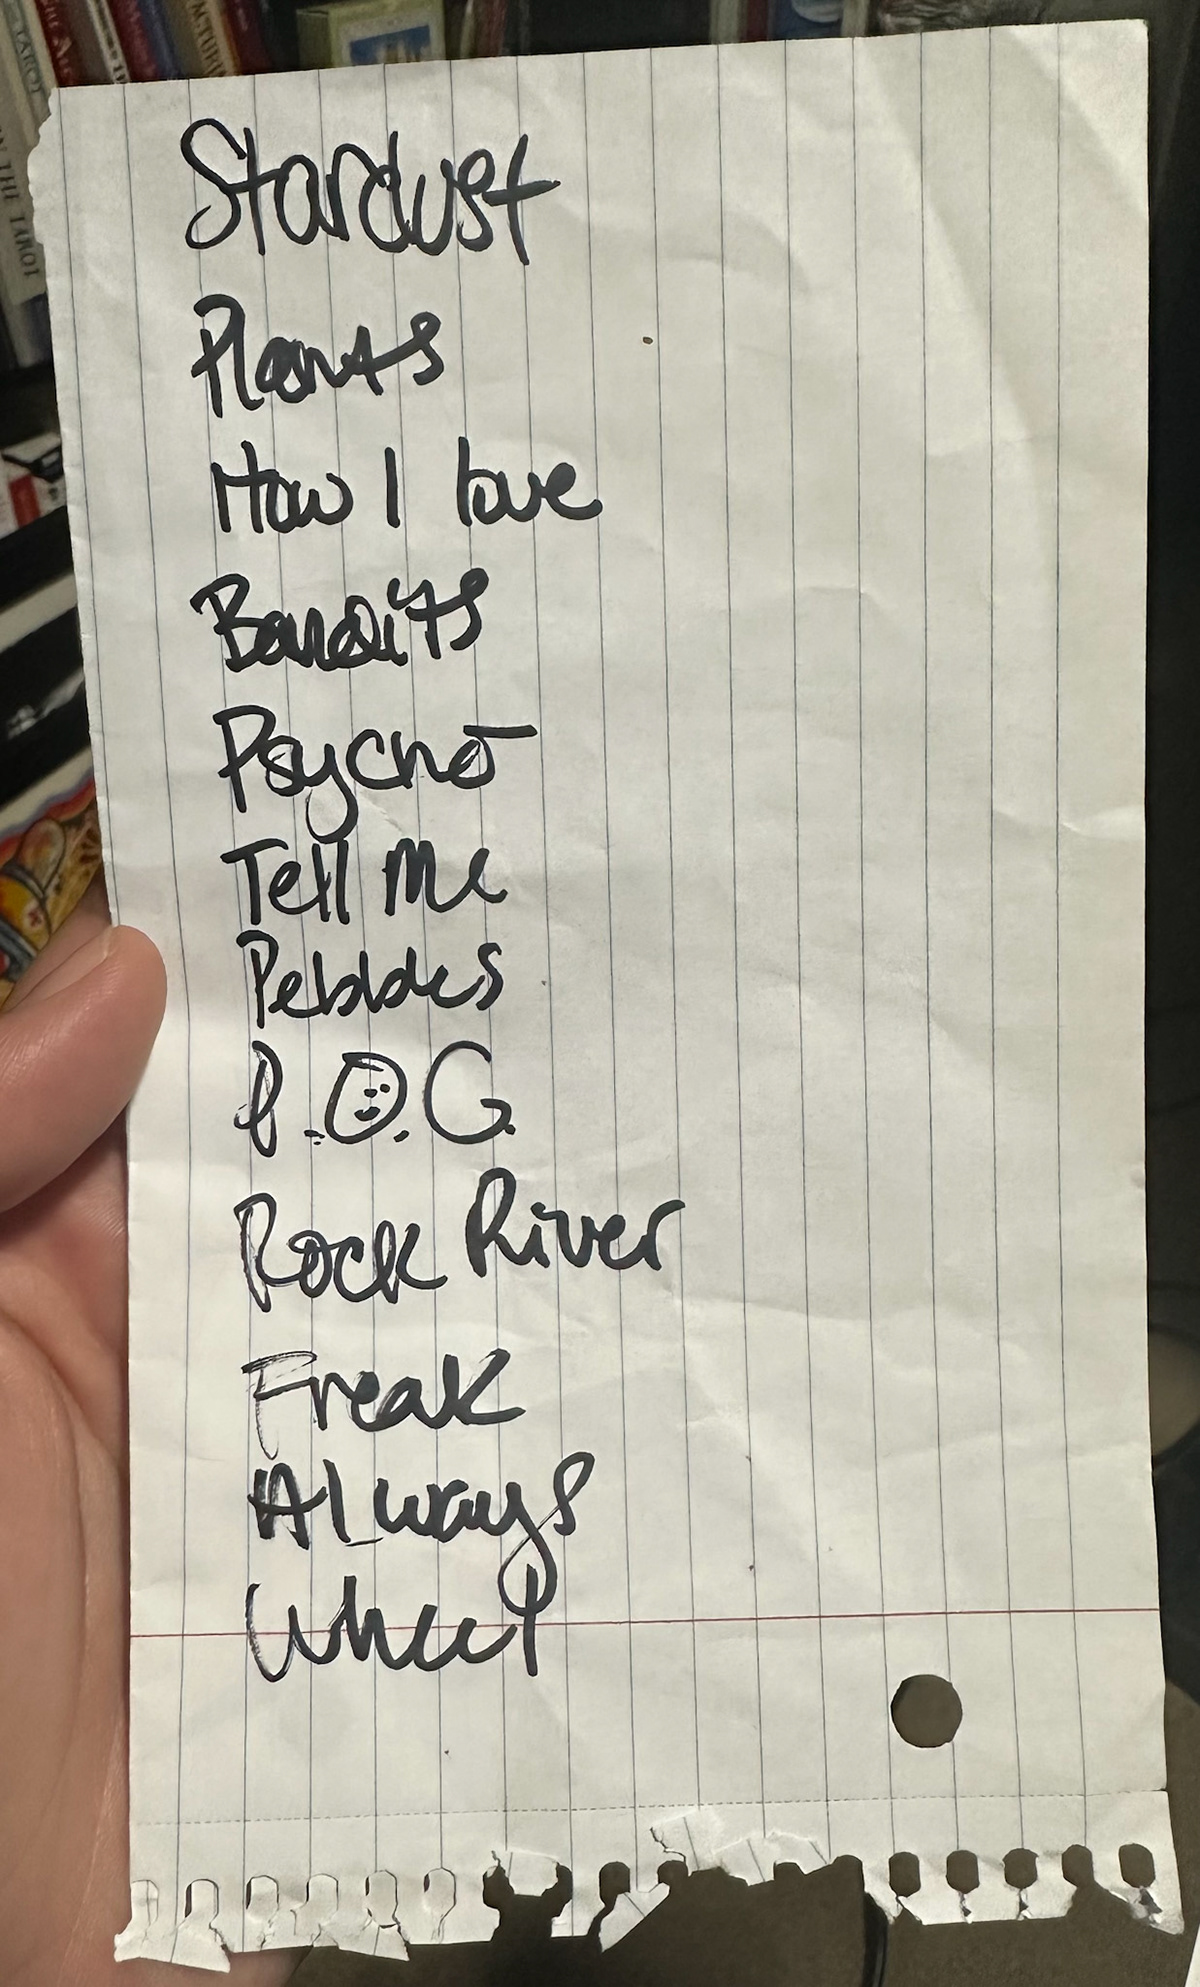 TAROT
IN THE TAROT
Stardust
Plants
How I love
Bandits
Psycho
Tell Me
Pebbles
P.O.G.
Rock River
Freak
Always
Wheel